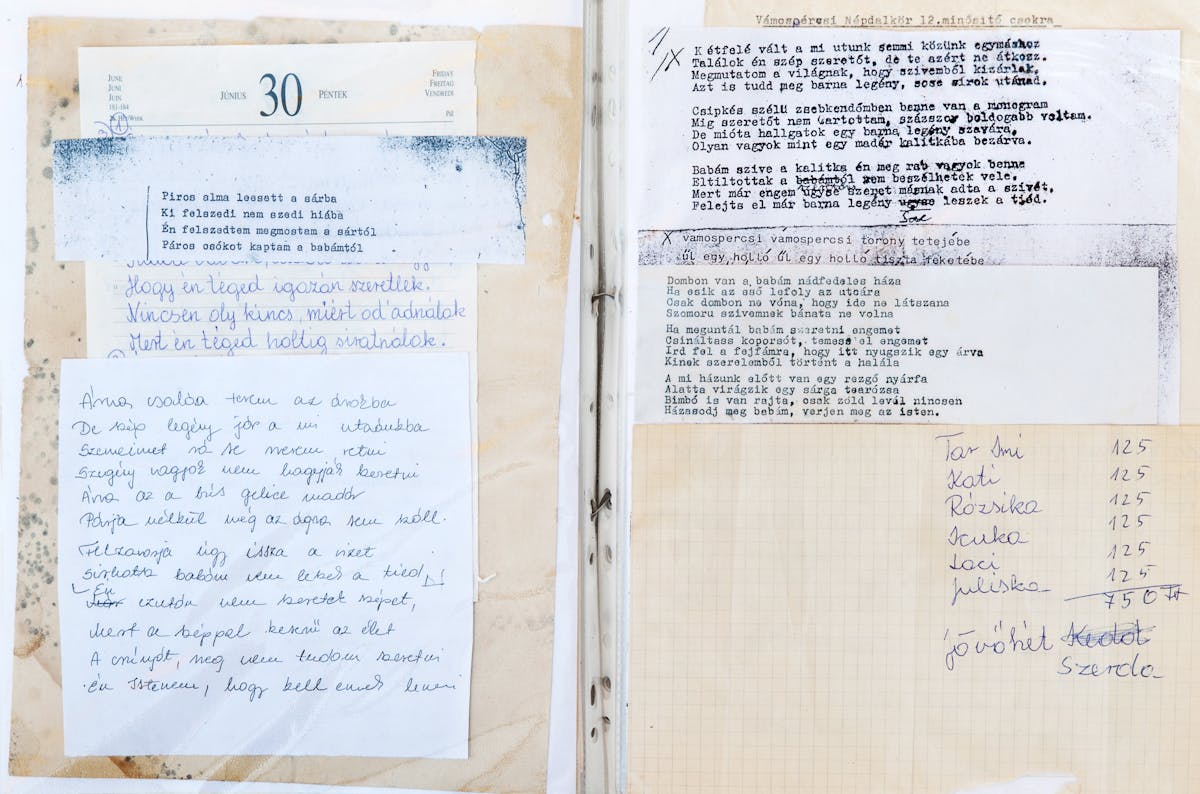 JUNE
JUNI
JUIN
181-184
26. Hét/Week
JÚNIUS 30 PÉNTEK
FRIDAY
FREITAG
VENDREDI
Piros alma leesett a sárba
Ki felszedi nem szedi hiába
Én felszedtem megmostam a sártól
Páros csókot kaptam a babámtól
Hogy én téged igazán szeretlek.
Nincsen oly kincs, miért od'adnálak
Mert én téged holtig siratnálak.
Árva csalán terem az árokba
De szép legény jár a mi utcánkba
Szemeimet rá se merem vetni
Szegény vagyok nem hagyják szeretni
Árva az a bús gelice madár
Párja nélkül még az ágra sem száll.
Felzavarja úgy issza a vizet
Sirhatsz babám nem leszek a tied
Én
ezután nem szeretek szépet,
Mert a széppel keserű az élet
A csúnyát, meg nem tudom szeretni
Én Istenem, hogy kell ennek lenni
Vámospércsi Népdalkör 12.minősitő csokra
1/x
Kétfelé vált a mi utunk semmi közünk egymáshoz
Találok én szép szeretőt, de te azért ne átkozz.
Megmutatom a világnak, hogy szivemből kizárlak.
Azt is tudd meg barna legény, sose sirok utánad.
Csipkés szélű zsebkendőmben benne van a monogram
Mig szeretőt nem tartottam, százszor boldogabb voltam.
De mióta hallgatok egy barna legény szavára,
Olyan vagyok mint egy madár kalitkába bezárva.
Babám szive a kalitka én meg rab vagyok benne
Eltiltottak a babámtól nem beszélhetek vele.
Mert már engem ugyse szeret másnak adta a szivét,
Felejts el már barna legény ugyse leszek a tiéd.
Sose
x vámospercsi vámospercsi torony tetejébe
ül egy holló ül egy holló tiszta feketébe
Dombon van a babám nádfedeles háza
Ha esik az eső lefoly az utcára
Csak dombon ne vóna, hogy ide ne látszana
Szomoru szivemnek bánata ne volna
Ha meguntál babám szeretni engemet
Csináltass koporsót, temess'el engemet
Ird fel a fejfámra, hogy itt nyugszik egy árva
Kinek szerelemből történt a halála
A mi házunk előtt van egy rezgő nyárfa
Alatta virágzik egy sárga tearózsa
Bimbó is van rajta, csak zöld levél nincsen
Házasodj meg babám, verjen meg az isten.
Tar Imi 125
Kati 125
Rózsika 125
Icuka 125
Laci 125
Juliska 125
750 Ft
jövőhét Kedd
Szerda